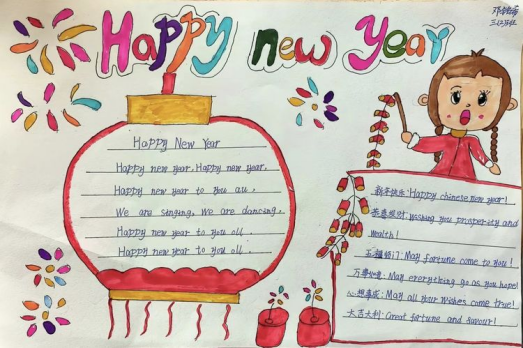 Happy new year
Happy New Year
Happy new year, Happy new year,
Happy new year to you all,
We are singing, We are dancing,
Happy new year to you all
Happy new year to you all
新年快乐: Happy chinese new year!
恭喜发财: Wishing you prosperity and
wealth!
五福临门: May fortune come to you!
万事如意: May everything go as you hope!
心想事成: May all your wishes come true!
大吉大利: Great fortune and favour!